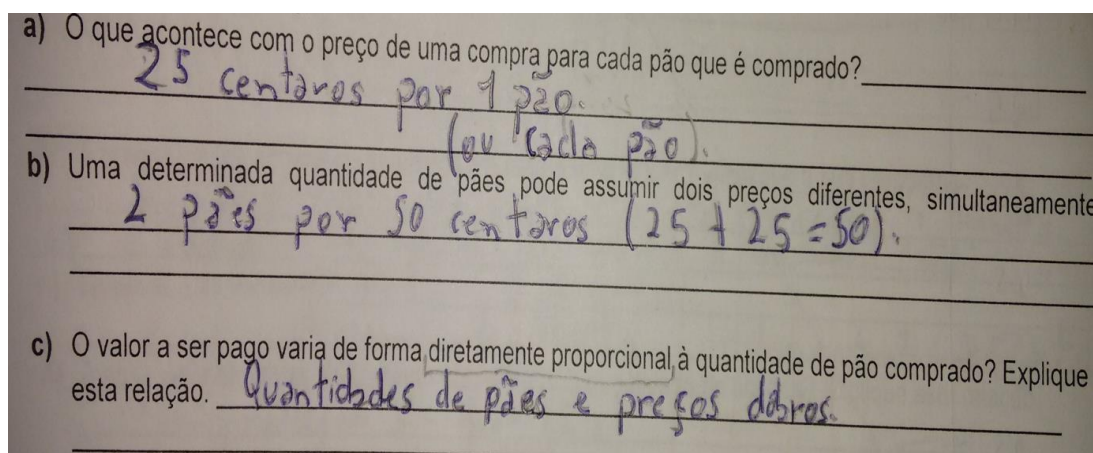 a) O que acontece com o preço de uma compra para cada pão que é comprado?
25 centavos por 1 pão.
(ou cada pão).
b) Uma determinada quantidade de pães pode assumir dois preços diferentes, simultaneamente
2 pães por 50 centavos (25 + 25 = 50).
c) O valor a ser pago varia de forma diretamente proporcional à quantidade de pão comprado? Explique
esta relação. Quantidades de pães e preços dobros.